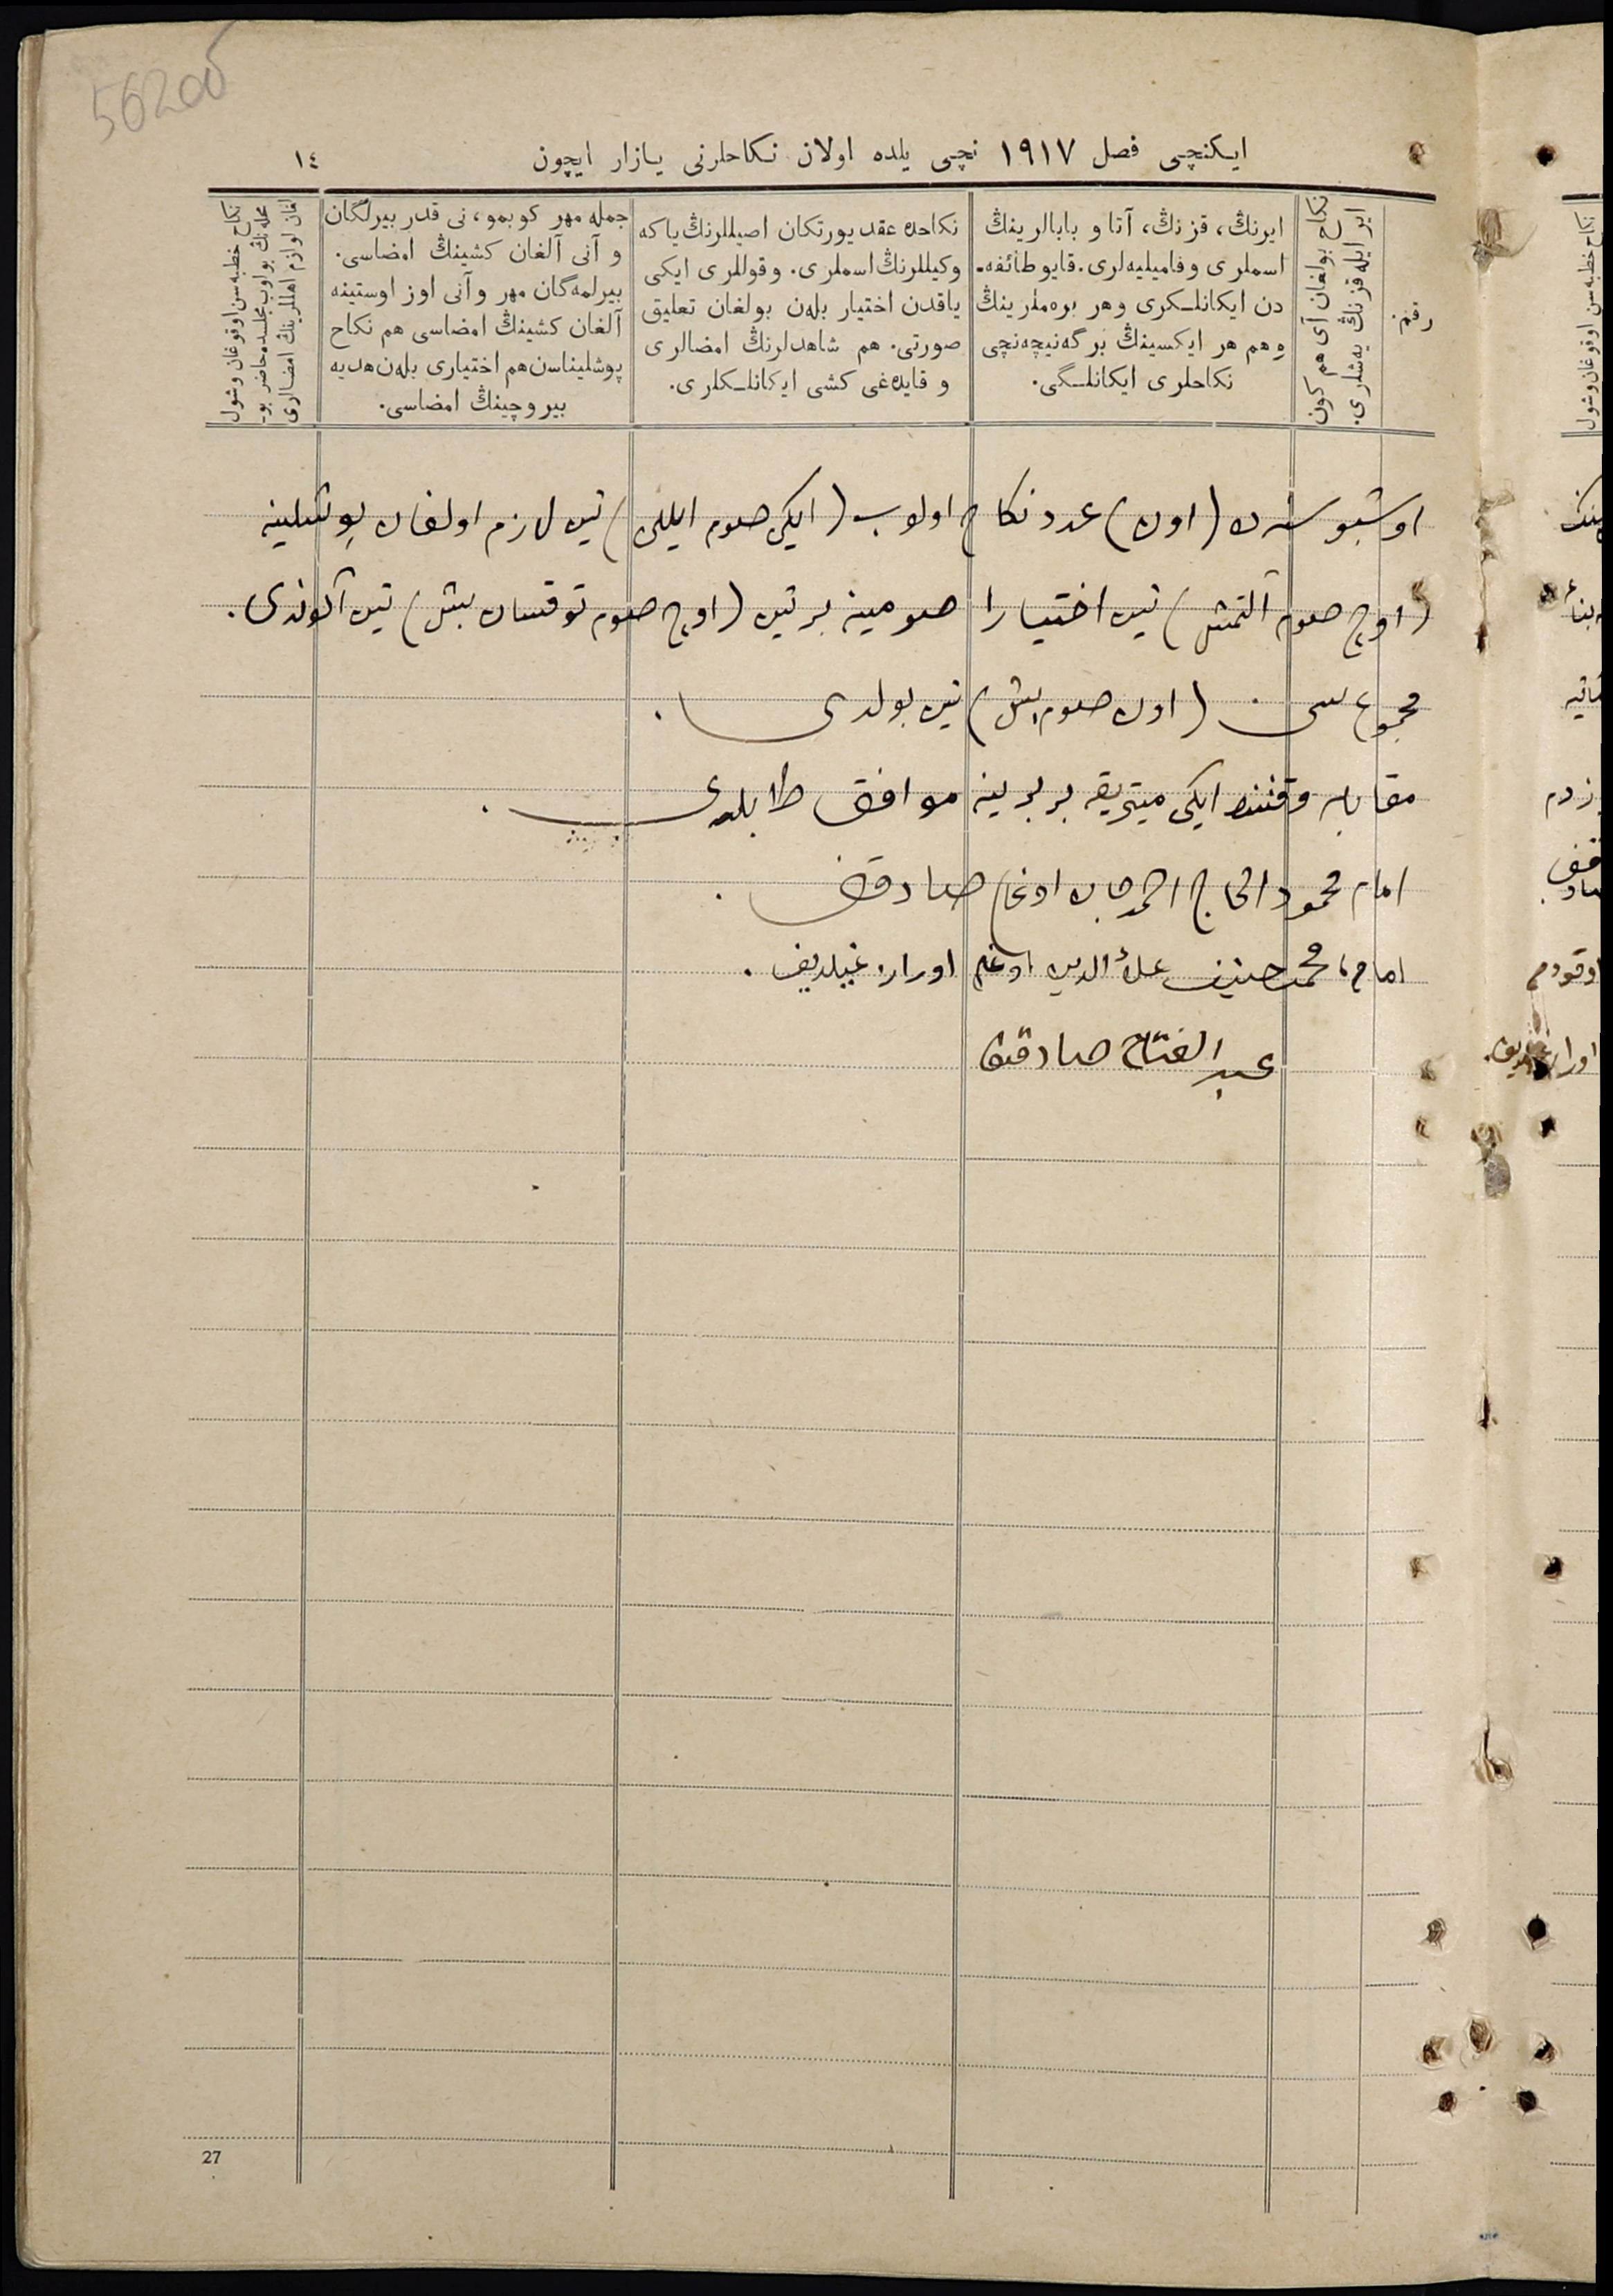 56200
ایکنچی فصل ۱۹۱۷ نچی یلده اولان نکاحلرنی یازار ایچون
١٤
رقم.
ایر ایله قزنڭ یەشلری.
نکاح بولغان آی هم کون
ایرنڭ، قزنڭ، آتا و بابالرینڭ
اسملری و فامیلیەلری. قایو طائفە-
دن ایکانلـکری و هر برەملرینڭ
و هم هر ایکسینڭ بر گەنیچەنچی
نکاحلری ایکانلـگی.
نکاحده عقد یورتکان اصیللرنڭ یا که
وکیللرنڭ اسملری. و قوللری ایکی
یاقدن اختیار بلەن بولغان تعلیق
صورتی. هم شاهدلرنڭ امضالری
و قایدەغی کشی ایکانلـکلری.
جمله مهر کوبمو، نی قدر بیرلگان
و آنی آلغان کشینڭ امضاسی.
بیرلمەگان مهر و آنی اوز اوستینه
آلغان کشینڭ امضاسی هم نکاح
پوشلیناسن هم اختیاری بلەن هدیه
بیروچینڭ امضاسی.
نکاح خطبەسن اوقوغان و شول
محلەنڭ بولوب مجلسده حاضر بو-
لغان لوازم اهللرینڭ امضالری
اوشبو سنەده (اون) عدد نکاح اولوب (ایکی صوم ایللی) تین لازم اولغان پوشلینه
(اوچ صوم آلتمش) تین اختیارا صومینه بر تین (اوچ صوم توقسان بیش) تین آلوندی.
مجموع سی (اون صوم بیش) تین بولدی.
مقابله وقتنده ایکی میتریقه بر برینه موافق طابلدی.
امام محمود الحاج احمدجان اوغلی صادقف.
امام محمد حنیف علاء الدین اوغلی اورازغیلدیف.
عبد الفتاح صادقف
27